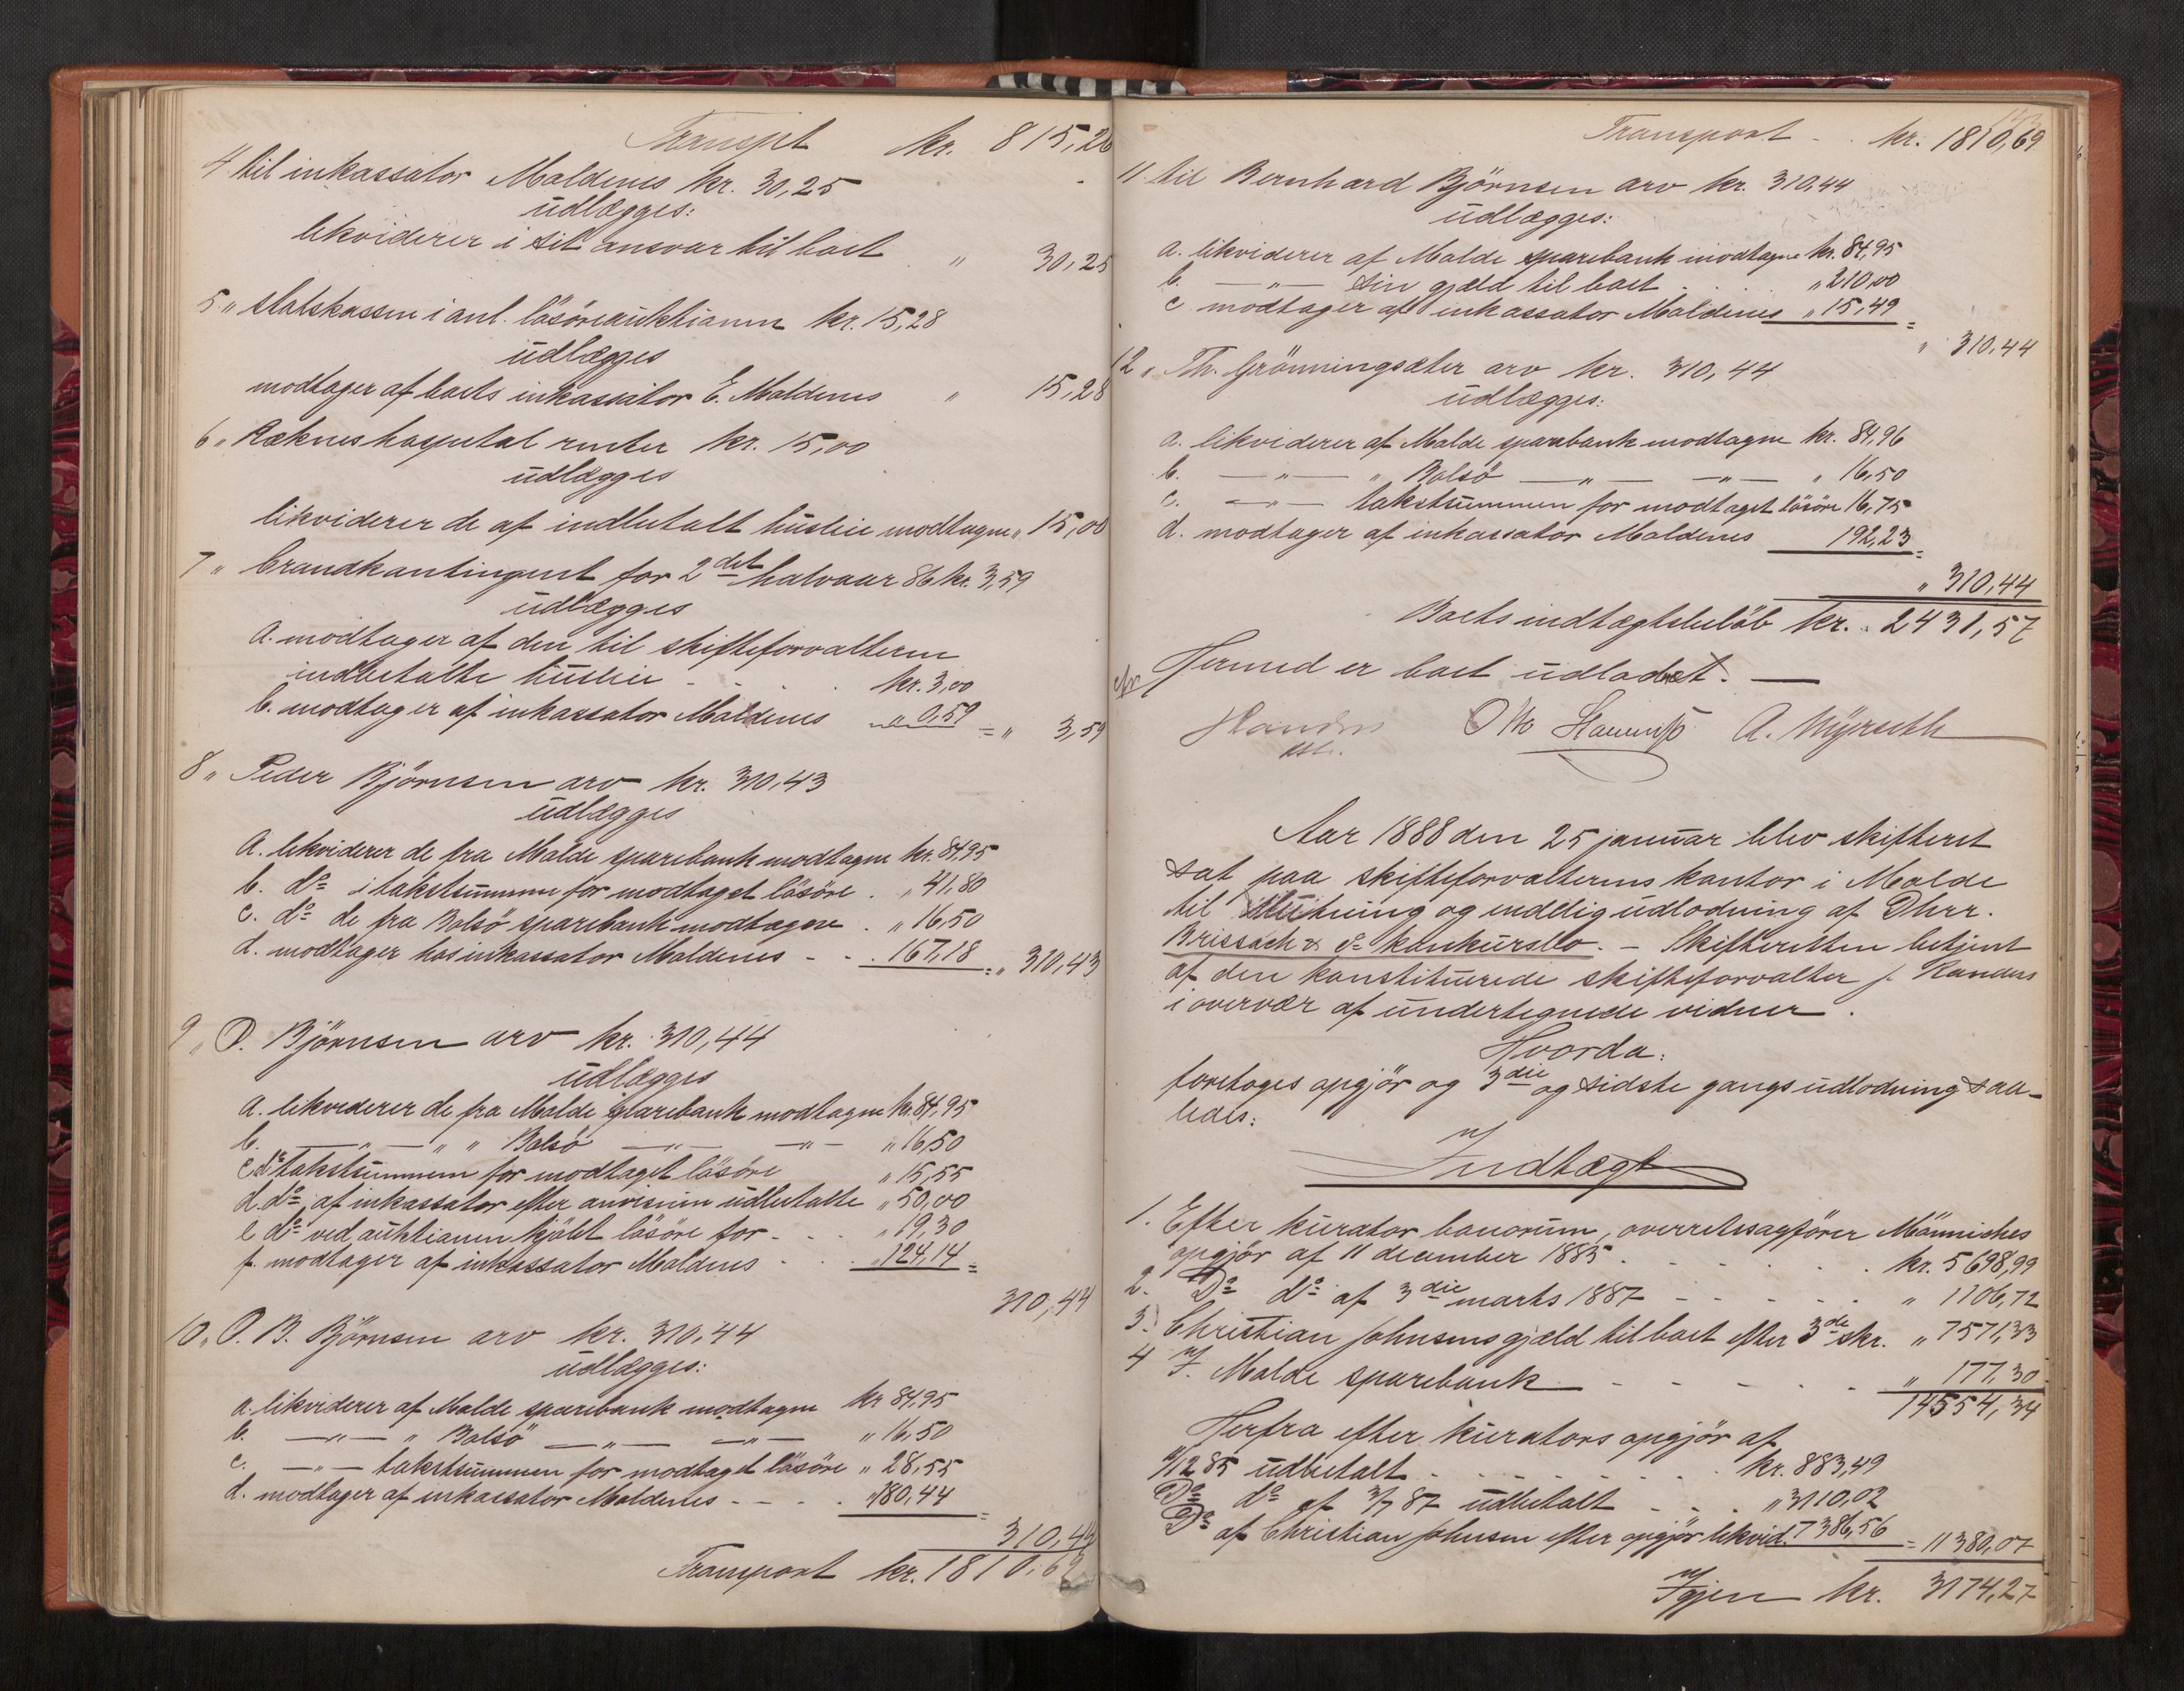 Transpt kr. 815,26
4 til inkassator Maldenes kr. 30,25
udlægges:
likviderer i sit ansvar til boet „ 30,25
5 „ statskassen i anl. lösöreauktionen kr. 15,28
udlægges
modtager af boets inkassator E. Maldenes „ 15,28
6 „ Ræknes hospital renter kr. 15,00
udlægges
likviderer de af indbetalt husleie modtagne „ 15,00
7 „ brandkontingent for 2det halvaar 86 kr. 3,59
udlægges
a. modtager af den til skifteforvalteren
indbetalte husleie - . . kr. 3,00
b. modtager af inkassator Maldenes „ 0,59 = „ 3,59
8 „ Peder Björnsen arv kr. 310,43
udlægges
a. likviderer de fra Molde sparebank modtagne kr. 84,95
b. do i takstsummen for modtaget lösöre . „ 41,80
c. do de fra Bolsö sparebank modtagne . „ 16,50
d. modtager hos inkassator Maldenes - - . 167,18 = „ 310,43
9 „ O. Björnsen arv kr. 310,44
udlægges
a. likviderer de fra Molde sparebank modtagne kr. 84,95
b. —„— „ „ Bolsö —„— —„— „ 16,50
c do takstsummen for modtaget lösöre „ 15,55
d. do af inkassator efter anvisning udbetalte „ 50,00
e do ved auktionen kjöbt lösöre for - . . „ 19,30
f. modtager af inkassator Maldenes - . . „ 124,14 =
310,44
10 „ O. B. Björnsen arv kr. 310,44
udlægges:
a. likviderer af Molde sparebank modtagne kr 84,95
b. —„— „ Bolsö —„— —„— „ 16,50
c. —„— takstsummen for modtaget lösöre „ 28,55
d. modtager af inkassator Maldenes - - . . 180,44 =
310,44
Transport kr. 1810,69
Transport . . kr. 1810,69
11 til Bernhard Björnsen arv kr. 310,44
udlægges:
a. likviderer af Molde sparebank modtagne kr. 84,95
b. —„— sin gjæld til boet . . . „ 210,00
c modtager af inkassator Maldenes „ 15,49 =
„ 310,44
12 „ Th. Grönningsæter arv kr. 310,44
udlægges:
a. likviderer af Molde sparebank modtagne kr. 84,96
b. —„— „ Bolsö —„— —„— „ 16,50
c. —„— takstsummen for modtaget lösöre 16,75
d. modtager af inkassator Maldenes 192,23 =
„ 310,44
Boets indtægtsbelöb kr. . 2431,57
Hermed er boet udloddet. —
A. Myrseth
Aar 1888 den 25 januar blev skifteret
sat paa skifteforvalterens kontor i Molde
til slutning og endelig udlodning af Dhrr.
Brissach & Co konkursbo. - Skifteretten betjent
af den konstituerede skifteforvalter J. Randers
i overvær af undertegnede vidner .
Hvorda:
foretoges opgjör og 3die og sidste gangs udlodning saa-
ledes:
Indtægt
1. Efter kurator bonorum, overretssagförer Mönniches
opgjör af 11 december 1885 . . . . . . kr. 5698,99
2. Do do af 3die marts 1887 - - - - . „ 1106,72
3. Christian Johnsens gjæld til boet efter 3die skr. „ 7571,33
4 I. Molde sparebank - - - - - . „ 177,30
14554,34
Herfra efter kurators opgjör af
11/12 85 udbetalt . . . . . . . . kr. 883,49
Do do af 3/3 87 udbetalt . . . „ 3110,02
Do af Christian Johnsen efter opgjör likvid. 7386,56 = 11380,07
Igjen kr. 3174,27